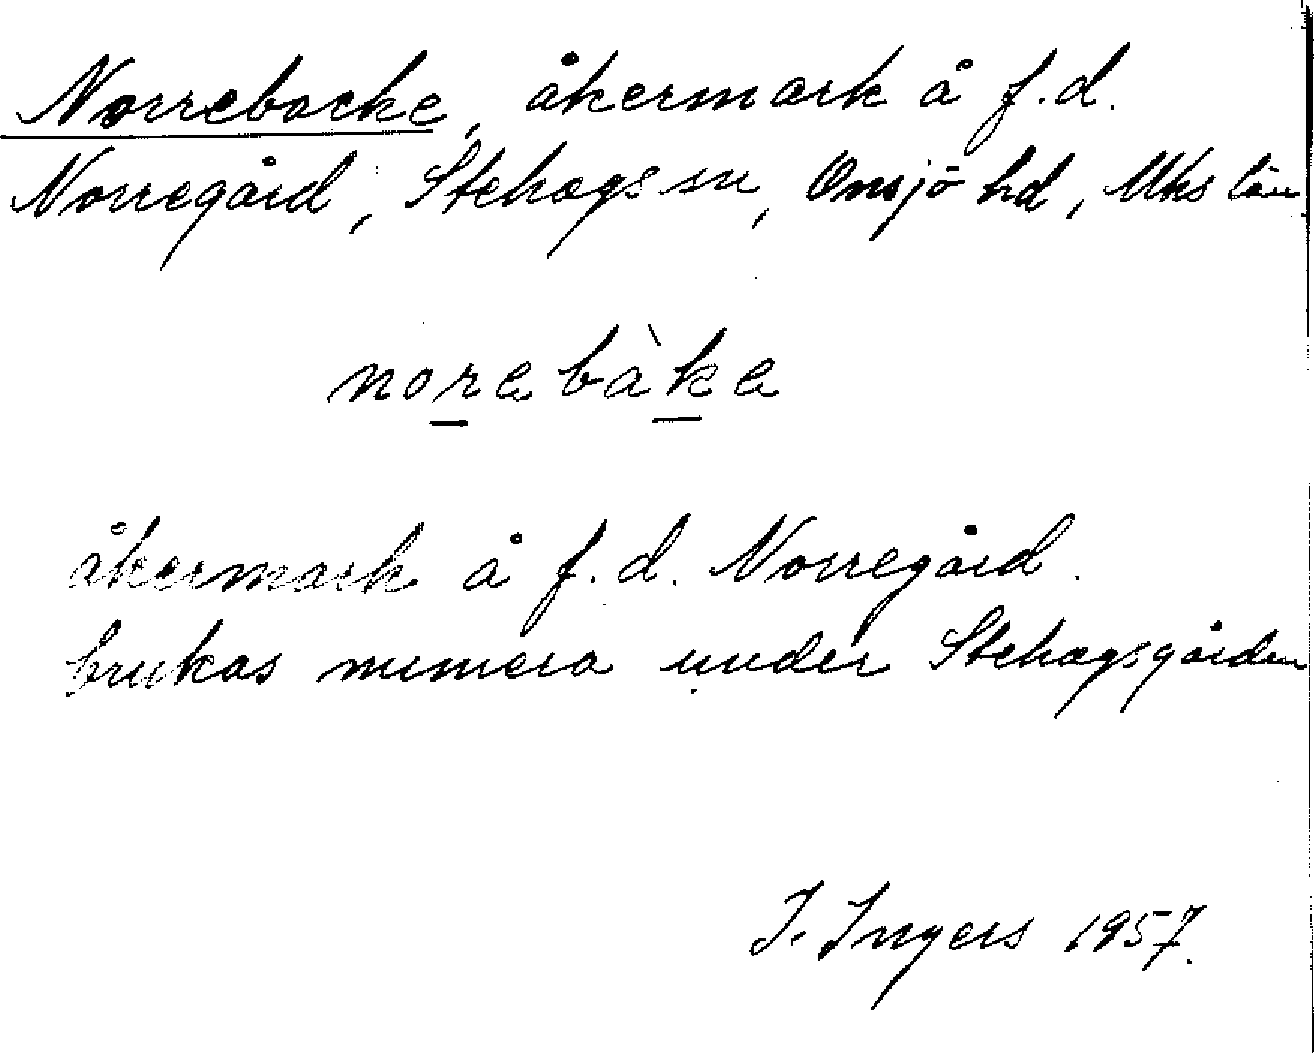 Norrebacke, åkermark å f.d.
Norregård, Stehags sn, Onsjö hd, Mhs län
norebàka
åkermark å f.d. Norregård.
brukas numera under Stehagsgården
I. Ingers 1957.